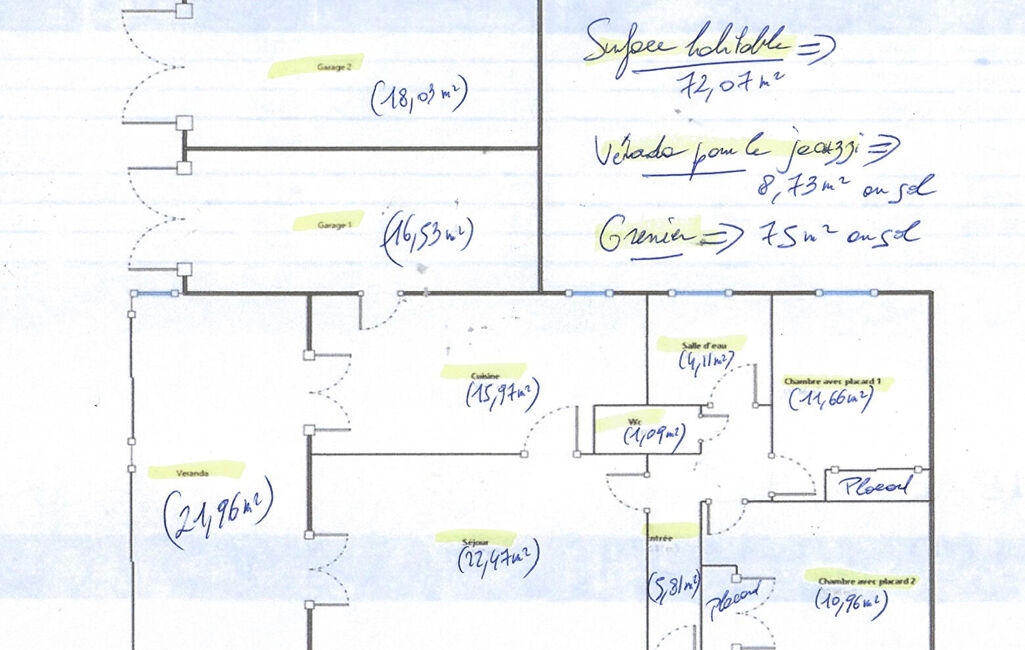 Surface habitable =>
72,07 m²
Garage 2
(18,03 m²)
Véranda pour le jacuzzi =>
8,73 m² au sol
Garage 1
(16,53 m²)
Grenier => 75 m² au sol
Salle d'eau
(4,11 m²)
Cuisine
(15,97 m²)
Chambre avec placard 1
(11,66 m²)
Wc
(1,09 m²)
Veranda
(21,96 m²)
Placard
Séjour
(22,47 m²)
Entrée
(5,81 m²)
Placard
Chambre avec placard 2
(10,96 m²)